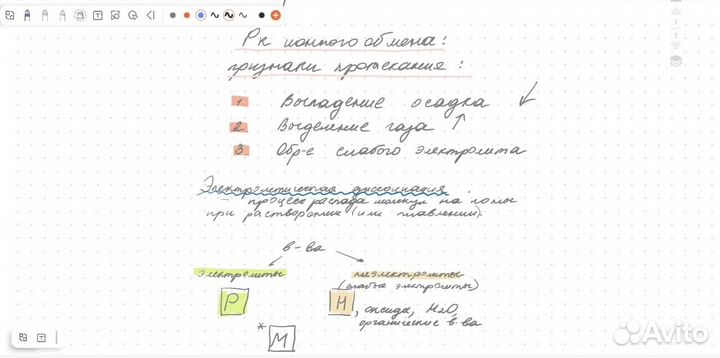 Рк ионного обмена:
признаки протекания:
1 Выпадение осадка ↓
2 Выделение газа ↑
3 Обр-е слабого электролита
Электролитическая диссоциация
- процесс распада молекул на ионы
при растворении (или плавлении)
в-ва
электролиты неэлектролиты
(слабые электролиты)
Р Н, оксиды, H2O,
органические в-ва
* М
Avito